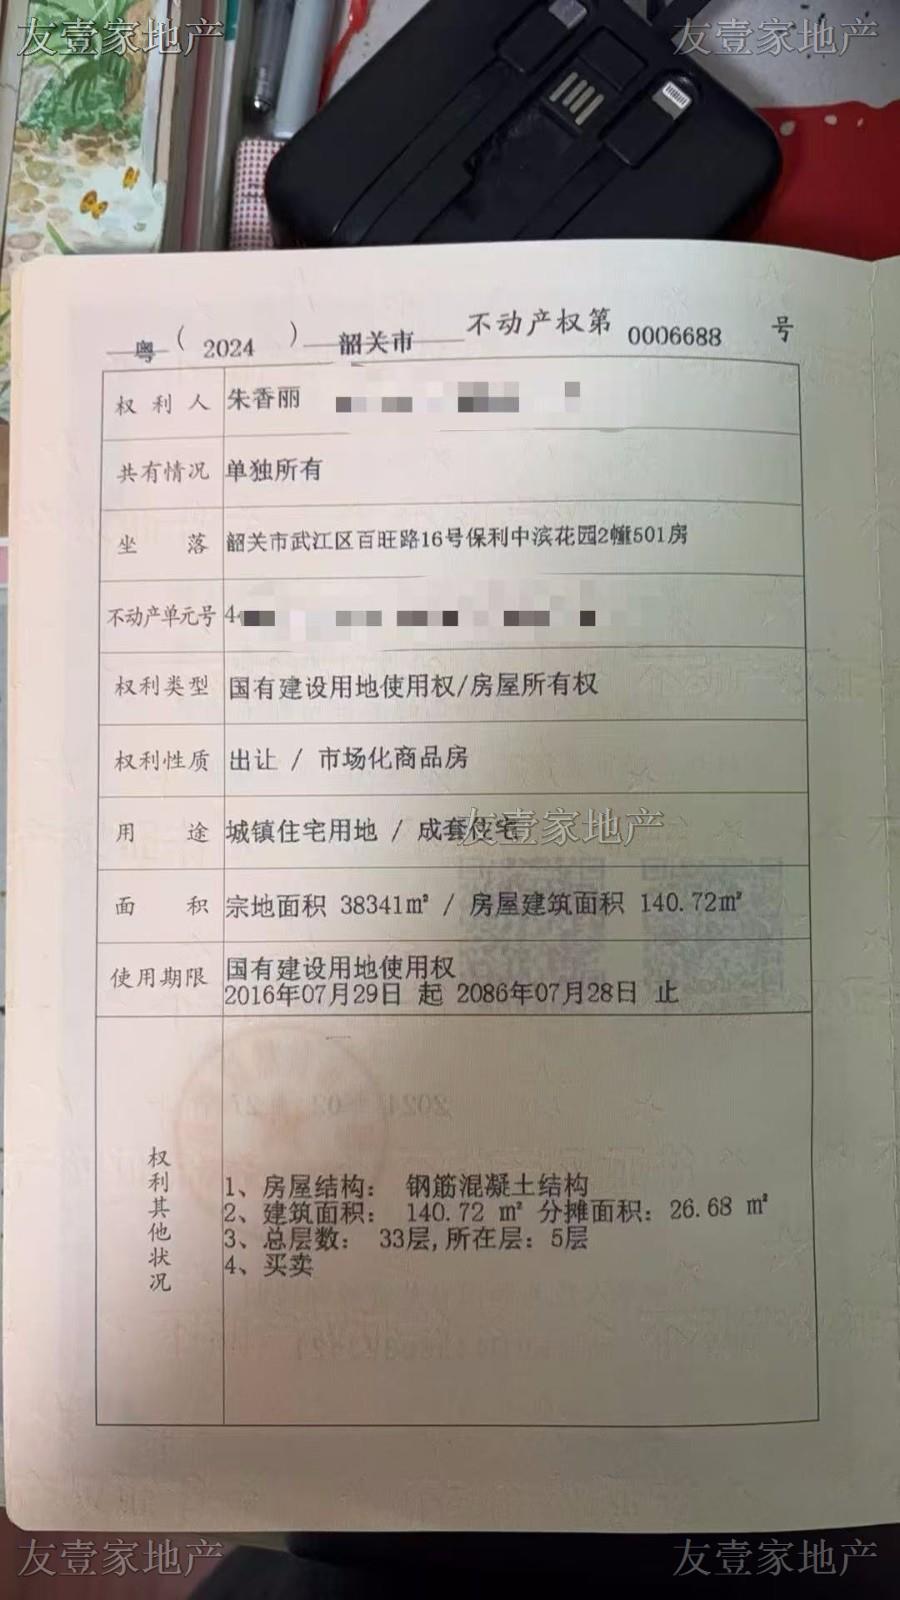 友壹家地产 友壹家地产
粤 ( 2024 ) 韶关市 不动产权第 0006688 号
权利人 朱香丽
共有情况 单独所有
坐落 韶关市武江区百旺路16号保利中滨花园2幢501房
不动产单元号 4
权利类型 国有建设用地使用权/房屋所有权
权利性质 出让 / 市场化商品房
用途 城镇住宅用地 / 成套住宅
友壹家地产
面积 宗地面积 38341㎡ / 房屋建筑面积 140.72㎡
使用期限 国有建设用地使用权
2016年07月29日 起 2086年07月28日 止
权利其他状况
1、房屋结构: 钢筋混凝土结构
2、建筑面积: 140.72 ㎡ 分摊面积:26.68 ㎡
3、总层数: 33层,所在层:5层
4、买卖
友壹家地产 友壹家地产